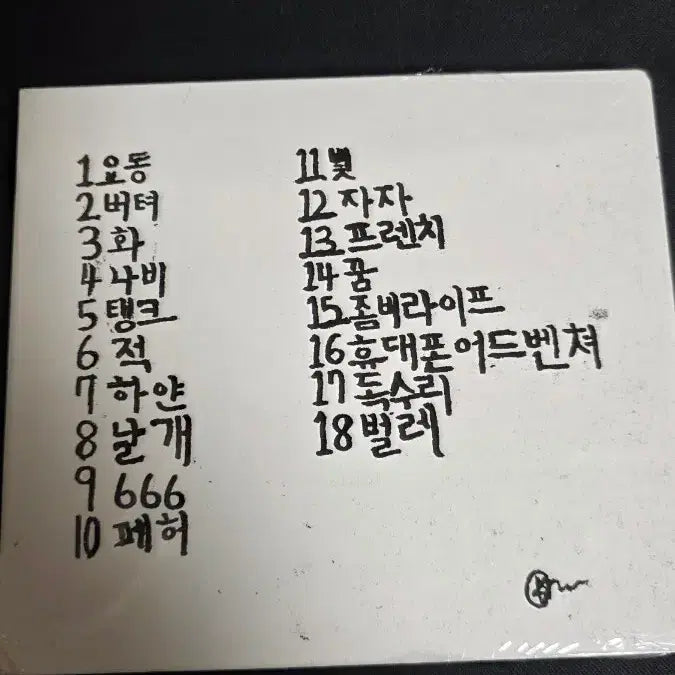 1 요동
2 버텨
3 화
4 나비
5 탱크
6 적
7 하얀
8 날개
9 666
10 폐허
11 빛
12 자자
13 프렌치
14 꿈
15 좀비라이프
16 휴대폰어드벤쳐
17 독수리
18 벌레